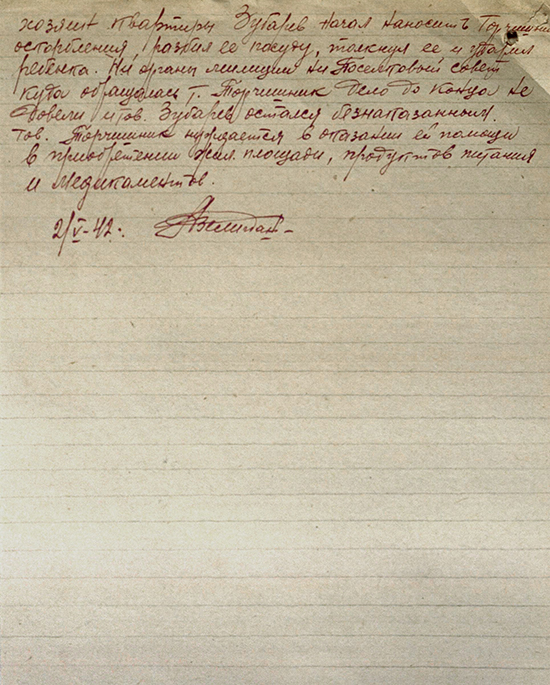 хозяин квартиры Зубарев начал наносить Торчинник
оскорбления, разбил ее посуду, толкнул ее и ударил
ребенка. Ни органы милиции ни Поселковый совет
куда обращалась т. Торчинник дело до конца не
довели и тов. Зубарев остался безнаказанным.
Тов. Торчинник нуждается в оказании ей помощи
в приобретении жил. площади, продуктов питания
и медикаментов.
2/V-42.